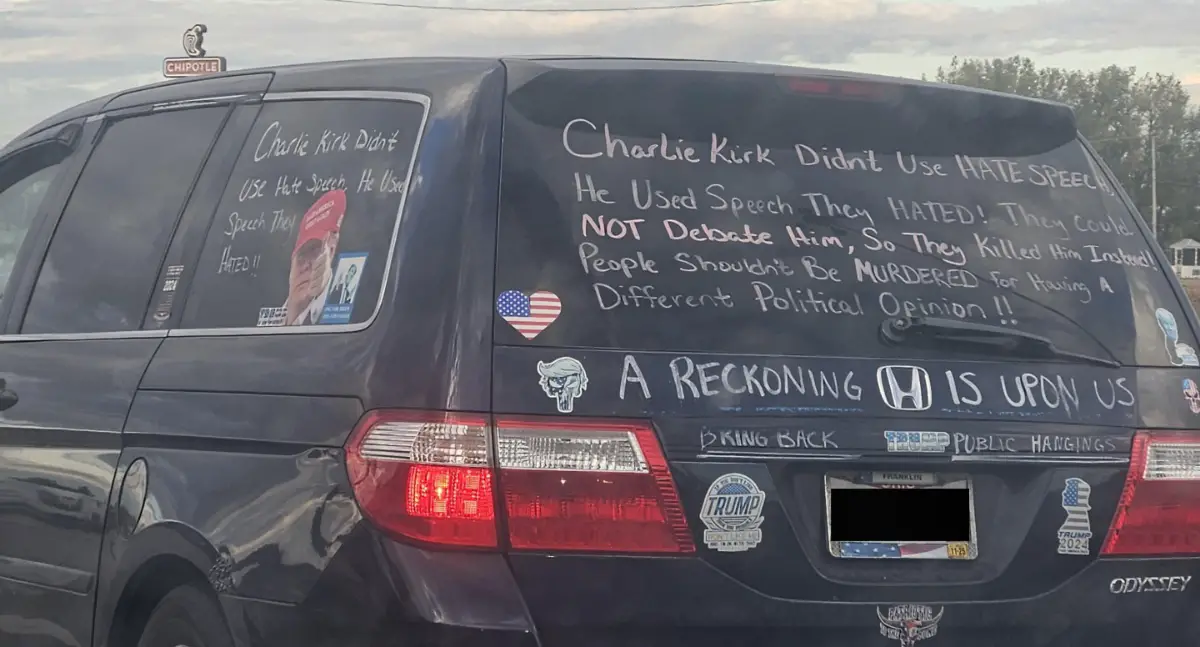 CHIPOTLE
Charlie Kirk Didn't
Use Hate Speech, He Used
Speech They
HATED!!
2024
Charlie Kirk Didn't Use HATE SPEECH,
He Used Speech They HATED! They Could
NOT Debate Him, So They Killed Him Instead!
People Shouldn't Be MURDERED for Having A
Different Political Opinion!!
A RECKONING IS UPON US
BRING BACK TRUMP PUBLIC HANGINGS
FRANKLIN
TRUMP
DON'T LIKE ME
TRUMP
2024
ODYSSEY
PATRIOTIC